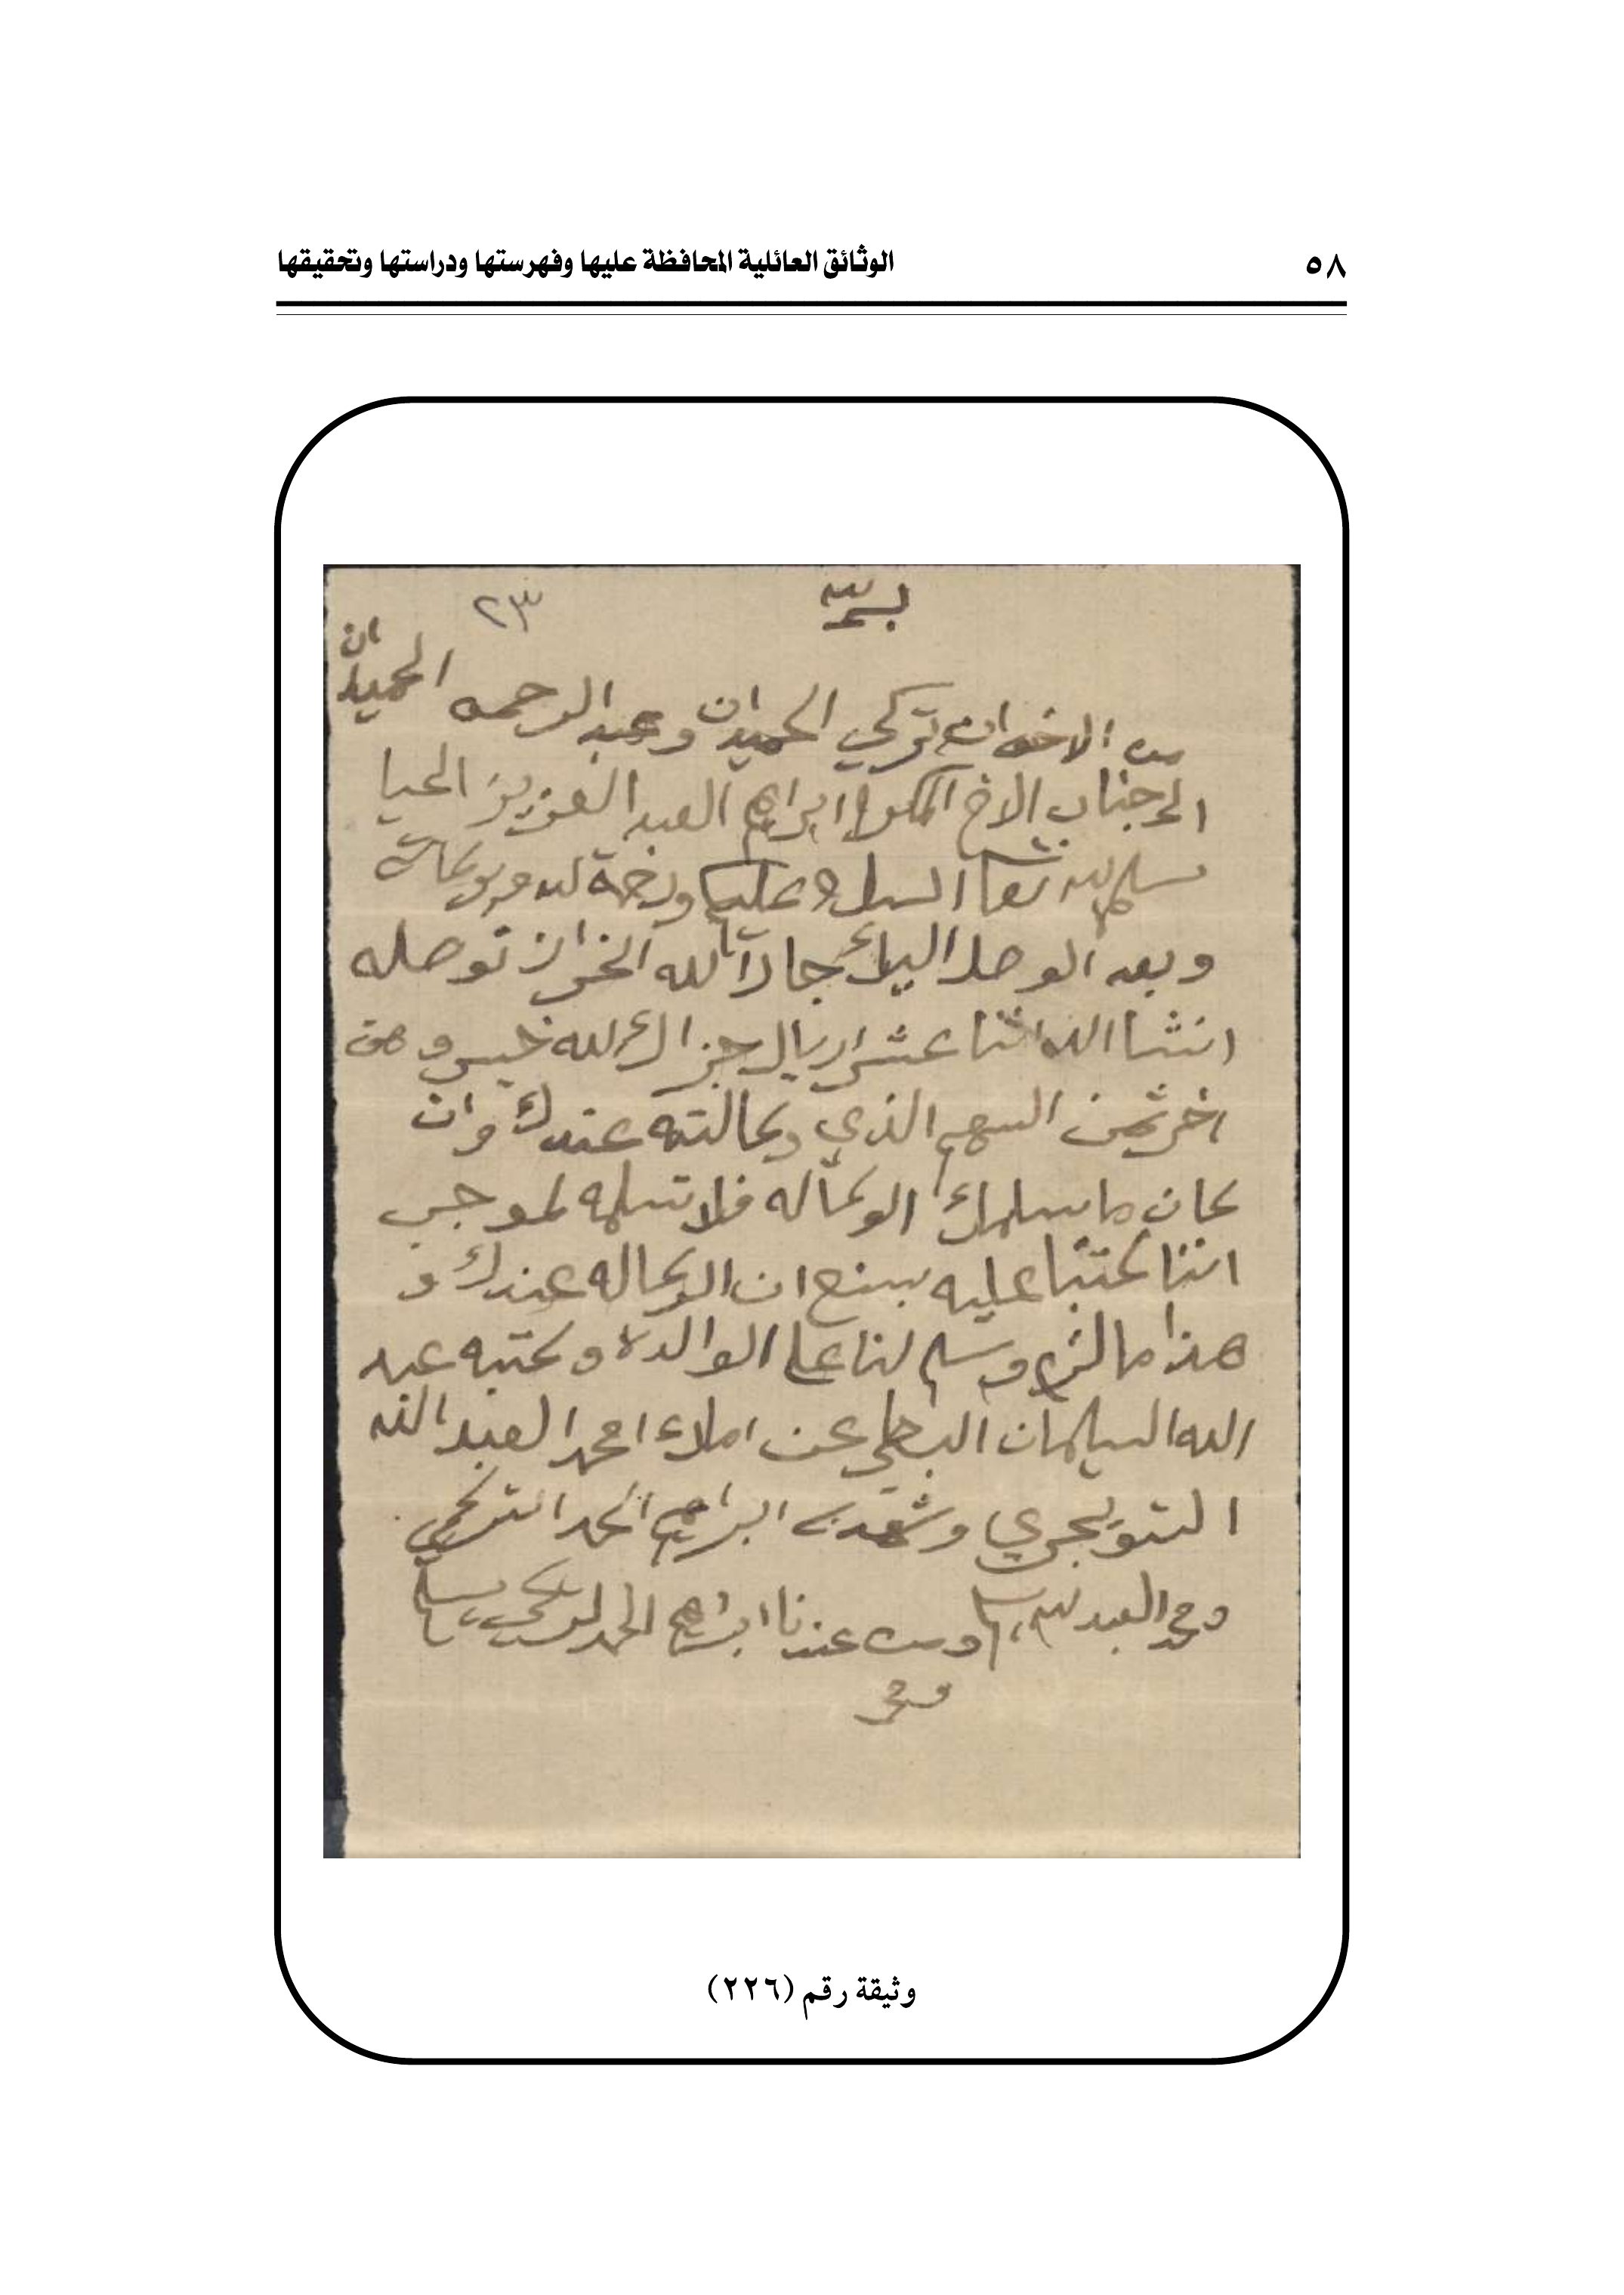 ٥٨
الوثائق العائلية المحافظة عليها وفهرستها ودراستها وتحقيقها
بسم الله
٢٣
من الاخوان تركي الحميدان وعبدالرحمن الحميدان
الى جناب الاخ المكرم ابراهيم العبدالعزيز المحيا
سلمه الله تعالى السلام عليكم ورحمة الله وبركاته
وبعد الوصل اليك جار الله الخزاز توصله
انشاالله اثنا عشر اريال جزاك الله خير وهن
اخر ثمن السهم الذي وكالته عندك وان
كان ما سلمك الوكاله فلا تسلمه لموجب
اننا كتبنا عليه ان الوكاله عندك و
هذا مالزم وسلم لنا على الوالده وكتبه عبد
الله السليمان عن املاء محمد العبدالله
التويجري وشهد به ابراهيم الحمد التركي
ومحمد العبدالله ومن عندنا ابراهيم الحمد
ومحمد
وثيقة رقم (٢٢٦)